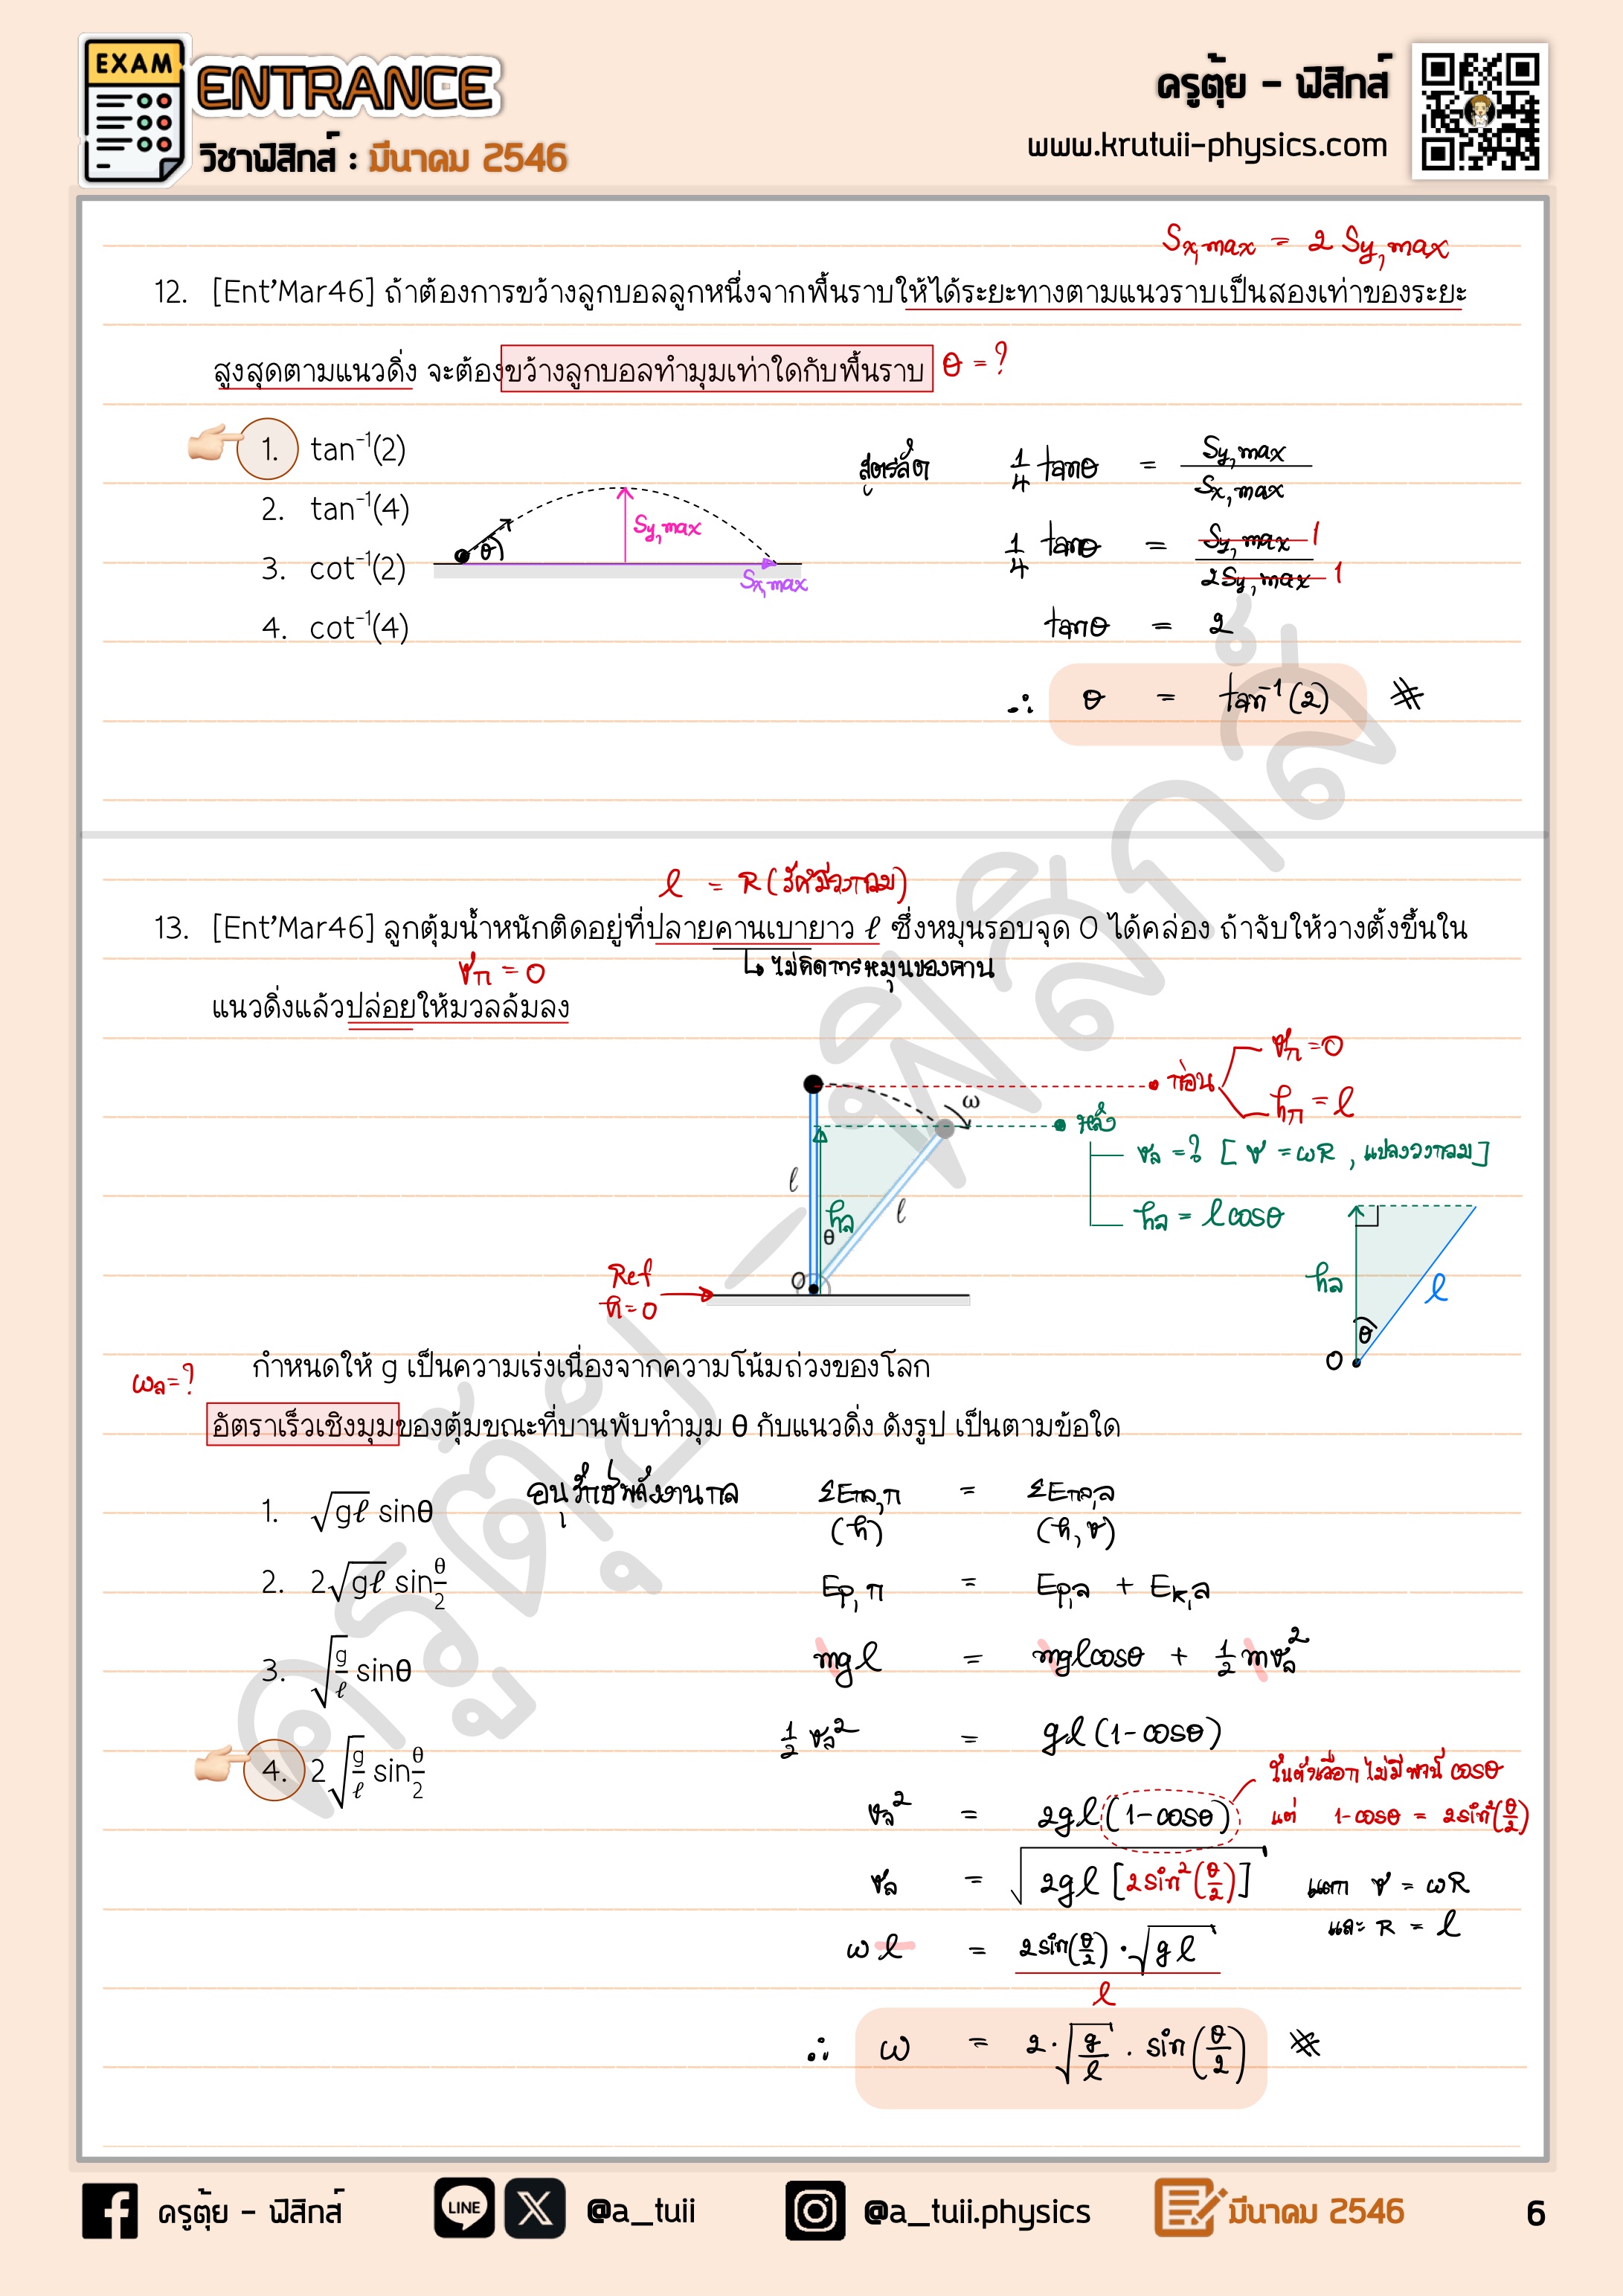 EXAM
ENTRANCE
วิชาฟิสิกส์ : มีนาคม 2546
ครูตุ้ย - ฟิสิกส์
www.krutuii-physics.com
Sx,max = 2 Sy,max
12. [Ent'Mar46] ถ้าต้องการขว้างลูกบอลลูกหนึ่งจากพื้นราบให้ได้ระยะทางตามแนวราบเป็นสองเท่าของระยะ
สูงสุดตามแนวดิ่ง จะต้องขว้างลูกบอลทำมุมเท่าใดกับพื้นราบ θ = ?
1. tan⁻¹(2)
2. tan⁻¹(4)
3. cot⁻¹(2)
4. cot⁻¹(4)
θ
Sy,max
Sx,max
สูตรลัด 1/4 tanθ = Sy,max / Sx,max
1/4 tanθ = Sy,max 1 / 2Sy,max 1
tanθ = 2
∴ θ = tan⁻¹(2) #
ℓ = R (รัศมีวงกลม)
13. [Ent'Mar46] ลูกตุ้มน้ำหนักติดอยู่ที่ปลายคานเบายาว ℓ ซึ่งหมุนรอบจุด O ได้คล่อง ถ้าจับให้วางตั้งขึ้นใน
vก = 0
↳ ไม่คิดการหมุนของคาน
แนวดิ่งแล้วปล่อยให้มวลล้มลง
ก่อน
vก = 0
hก = ℓ
ω
หลัง
vล = ? [ v = ωR , แปลงวงกลม ]
hล = ℓcosθ
ℓ
hล
ℓ
θ
O
Ref
h = 0
hล
ℓ
θ
O
ωล = ?
กำหนดให้ g เป็นความเร่งเนื่องจากความโน้มถ่วงของโลก
อัตราเร็วเชิงมุมของตุ้มขณะที่บานพับทำมุม θ กับแนวดิ่ง ดังรูป เป็นตามข้อใด
1. √gℓ sinθ
2. 2√gℓ sin θ/2
3. √g/ℓ sinθ
4. 2√g/ℓ sin θ/2
อนุรักษ์พลังงานกล ΣEกล,ก = ΣEกล,ล
(h) (h, v)
Ep,ก = Ep,ล + Ek,ล
mgℓ = mgℓcosθ + 1/2 mvล²
1/2 vล² = gℓ(1-cosθ)
ในตัวเลือกไม่มีพจน์ cosθ
แต่ 1-cosθ = 2sin²(θ/2)
vล² = 2gℓ(1-cosθ)
vล = √2gℓ[2sin²(θ/2)]
แทน v = ωR
และ R = ℓ
ωℓ = 2sin(θ/2)·√gℓ / ℓ
∴ ω = 2·√g/ℓ · sin(θ/2) #
ครูตุ้ย - ฟิสิกส์
ครูตุ้ย - ฟิสิกส์
LINE
@a_tuii
@a_tuii.physics
มีนาคม 2546
6